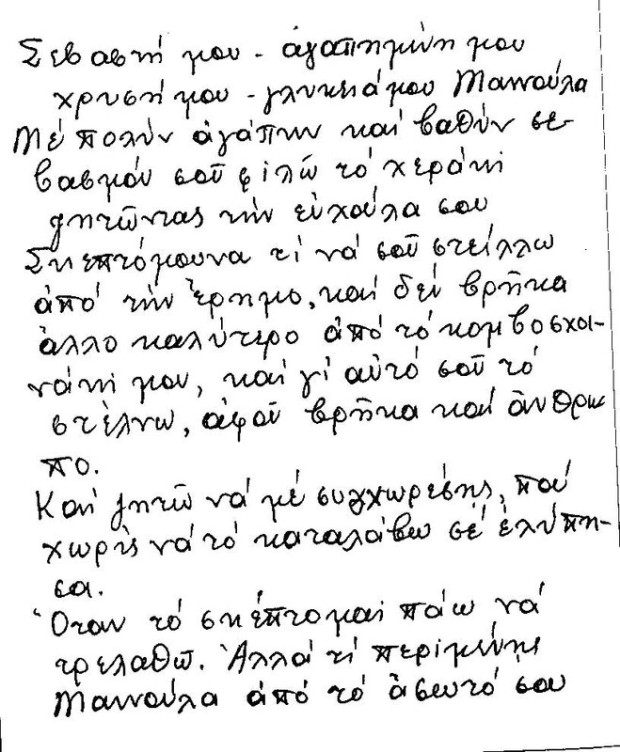 Σεβαστή μου - ἀγαπημένη μου
χρυσή μου - γλυκειά μου Μαννούλα
Μέ πολύν ἀγάπην καί βαθύν σε-
βασμόν σοῦ φιλῶ τό χεράκι
ζητῶντας τήν εὐχούλα σου
Σκεπτόμουνα τί νά σοῦ στείλλω
ἀπό τήν Ἔρημο, καί δέν βρῆκα
ἄλλο καλύτερο ἀπό τό κομβοσχοι-
νάκι μου, καί γι αὐτό σοῦ τό
στέλνω, ἀφοῦ βρῆκα καί ἄνθρω
πο.
Καί ζητῶ νά μέ συγχωρέσης, πού
χωρίς νά τό καταλάβω σέ ἐλύπη-
σα.
Ὅταν τό σκέπτομαι πάω νά
τρελαθῶ. Ἀλλά τί περιμένης
Μαννούλα ἀπό τό ἄσωτό σου